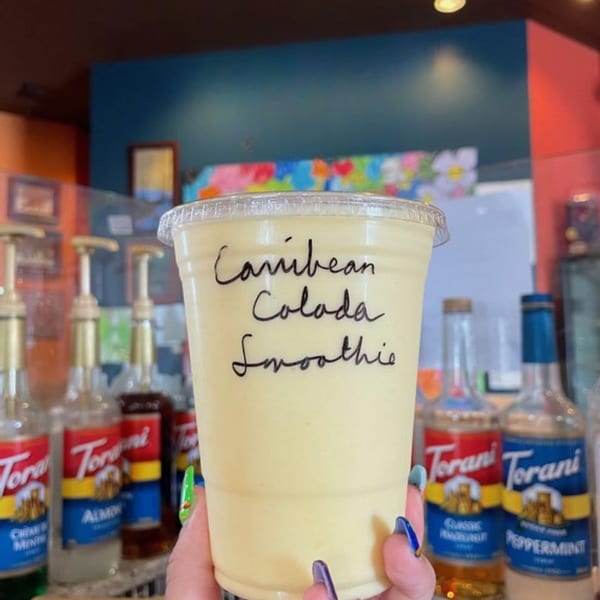 Carribean
Colada
Smoothie
Torani
CRÈME DE
MENTHE
Torani
ALMOND
Torani
Torani
CLASSIC
HAZELNUT
Torani
PEPPERMINT